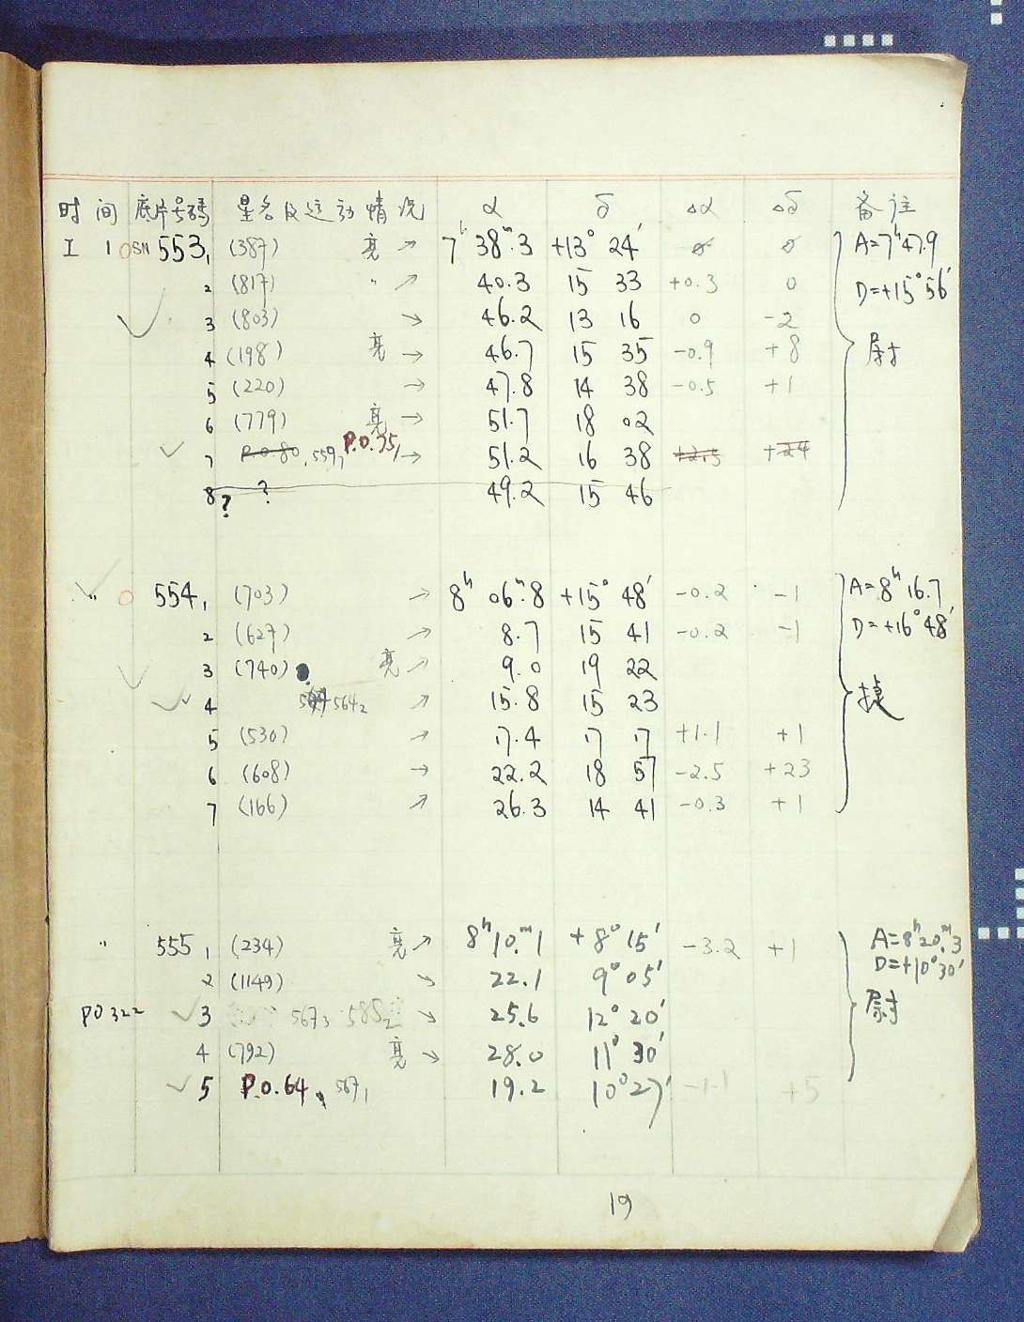 时间 底片号码 星名及运动情况 α δ Δα Δδ 备注
I 10 SN 553, 1 (387) 亮 ↗ 7h 38m.3 +13° 24' 0 0 A=7h47.9
2 (817) " ↗ 40.3 15 33 +0.3 0 D=+15°56'
3 (803) → 46.2 13 16 0 -2
4 (198) 亮 → 46.7 15 35 -0.9 +8 尉
5 (220) → 47.8 14 38 -0.5 +1
6 (779) 亮 → 51.7 18 02
7 P.O.80, 559, P.O.75, → 51.2 16 38 +2.5 +24
8? ? 49.2 15 46
" 0 554, 1 (703) → 8h 06m.8 +15° 48' -0.2 -1 A=8h16.7
2 (627) ↗ 8.7 15 41 -0.2 -1 D=+16°48'
3 (740) 亮 ↗ 9.0 19 22
4 564₂ ↗ 15.8 15 23
5 (530) ↗ 17.4 17 17 +1.1 +1
6 (608) → 22.2 18 57 -2.5 +23
7 (166) ↗ 26.3 14 41 -0.3 +1
" 555, 1 (234) 亮 ↗ 8h10m.1 +8°15' -3.2 +1 A=8h20m.3
2 (1149) ↘ 22.1 9°05' D=+10°30'
PO 322 3 567₃ 585₂ ↘ 25.6 12°20' 尉
4 (792) 亮 ↘ 28.0 11°30'
5 P.O.64, 567₁ 19.2 10°27' -1.1 +5
19